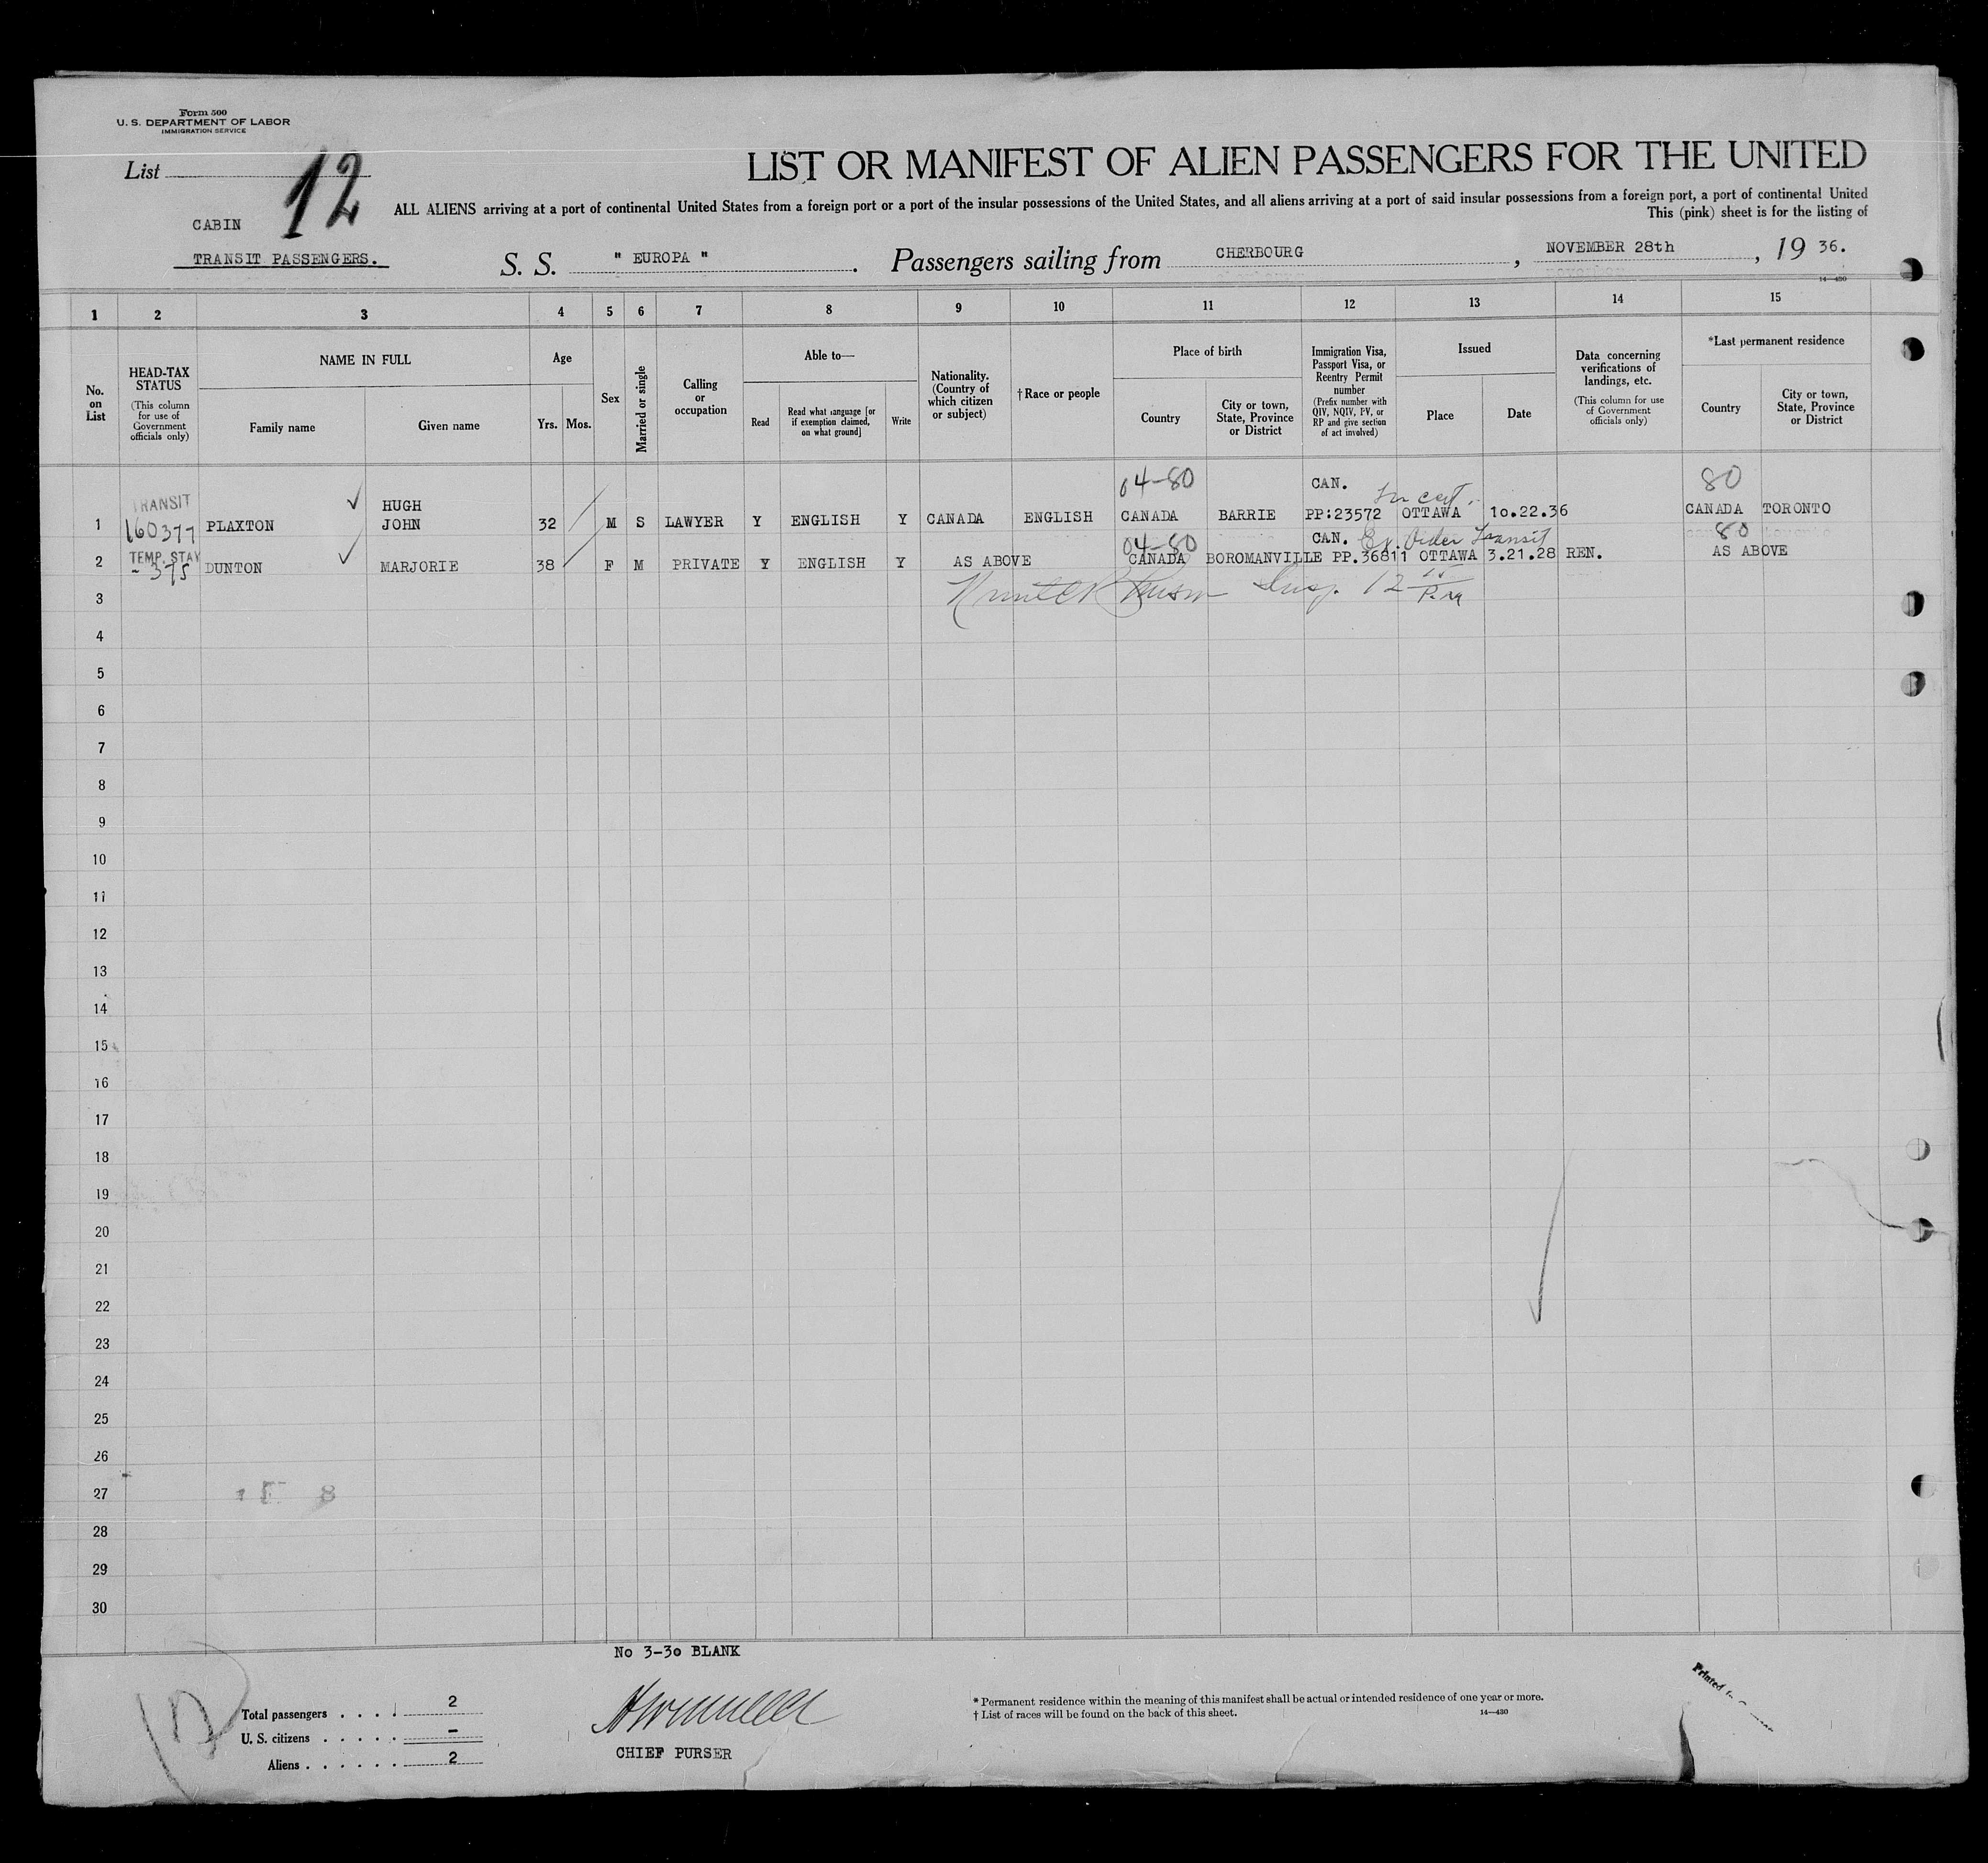 Form 500
U. S. DEPARTMENT OF LABOR
IMMIGRATION SERVICE
List 12
LIST OR MANIFEST OF ALIEN PASSENGERS FOR THE UNITED
ALL ALIENS arriving at a port of continental United States from a foreign port or a port of the insular possessions of the United States, and all aliens arriving at a port of said insular possessions from a foreign port, a port of continental United
This (pink) sheet is for the listing of
CABIN
TRANSIT PASSENGERS.
S. S. " EUROPA " . Passengers sailing from CHERBOURG , NOVEMBER 28th , 19 36.
14—430
1 2 3 4 5 6 7 8 9 10 11 12 13 14 15
No. on List
HEAD-TAX STATUS
(This column for use of Government officials only)
NAME IN FULL
Family name
Given name
Age
Yrs.
Mos.
Sex
Married or single
Calling or occupation
Able to—
Read
Read what language [or if exemption claimed, on what ground]
Write
Nationality. (Country of which citizen or subject)
†Race or people
Place of birth
Country
City or town, State, Province or District
Immigration Visa, Passport Visa, or Reentry Permit number
(Prefix number with QIV, NQIV, PV, or RP and give section of act involved)
Issued
Place
Date
Data concerning verifications of landings, etc.
(This column for use of Government officials only)
*Last permanent residence
Country
City or town, State, Province or District
TRANSIT HUGH 04-80 CAN. 80
1 160377 PLAXTON JOHN 32 M S LAWYER Y ENGLISH Y CANADA ENGLISH CANADA BARRIE PP:23572 OTTAWA 10.22.36 CANADA TORONTO
TEMP. STAY 04-80 CAN. Transit 80
2 - 375 DUNTON MARJORIE 38 F M PRIVATE Y ENGLISH Y AS ABOVE CANADA BOROMANVILLE PP.36811 OTTAWA 3.21.28 REN. AS ABOVE
3 Insp. 12 P.M
4
5
6
7
8
9
10
11
12
13
14
15
16
17
18
19
20
21
22
23
24
25
26
27
28
29
30
No 3-30 BLANK
Total passengers . . . . 2
U. S. citizens . . . . . –
Aliens . . . . . . 2
CHIEF PURSER
* Permanent residence within the meaning of this manifest shall be actual or intended residence of one year or more.
† List of races will be found on the back of this sheet.
14—430
Printed
12